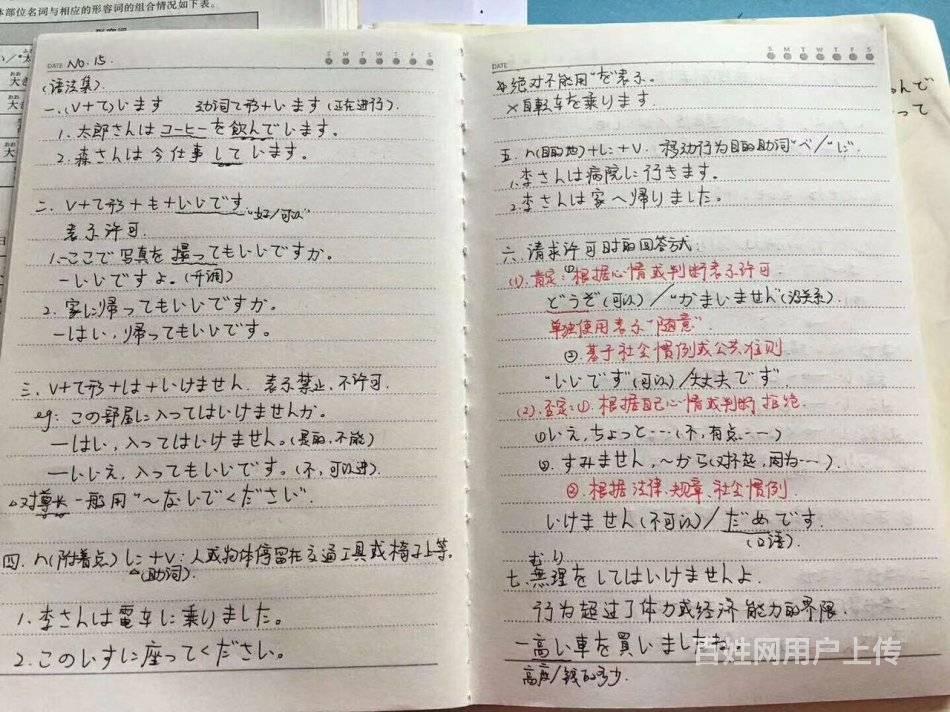 本部位名词与相应的形容词的组合情况如下表。
DATE No. 15
S M T W T F S
(语法集).
一.(V+て)います 动词て形+います(正在进行).
1. 太郎さんは コーヒーを飲んでいます。
2. 森さんは 今仕事しています。
二. V+て形+も+いいです.
"好/可以"
表示许可.
1.ここで写真を撮ってもいいですか.
ーいいですよ。(升调)
2. 家に帰ってもいいですか。
ーはい,帰ってもいいです。
三. V+て形+は+いけません. 表示禁止,不许可.
eg: この部屋に入ってはいけませんか。
ーはい,入ってはいけません。(是的,不能)
ーいいえ,入ってもいいです。(不,可以进).
△对尊长一般用"~ないでください".
四. n(附着点)に+V: 人或物体停留在交通工具或椅子上等。
△(助词).
1. 李さんは電車に乗りました。
2.このいすに座ってください。
DATE
S M T W T F S
绝对不能用"を"表示。
×自転車を乗ります.
五. n(目的地)+に+V. 移动行为目的助词"へ"/"に".
1.李さんは病院に行きます。
2.李さんは家へ帰りました。
六. 请求许可时的回答方式
(1). 肯定:①根据心情或判断表示许可.
どうぞ(可以)/"かまいません"(没关系).
单独使用表示"随意"
②基于社会惯例或公共准则
"いいです"(可以)/大丈夫です".
(2).否定:①.根据自己心情或判断拒绝.
いえ,ちょっと…(不,有点…)
すみません,~から(对不起,因为…).
②.根据法律、规章、社会惯例.
いけません(不可以)/だめです.
(口语).
むり
七.無理をしてはいけませんよ.
行为超过了体力或经济能力的界限.
ー高い車を買いましたね
高度/钱的多少.
百姓网用户上传